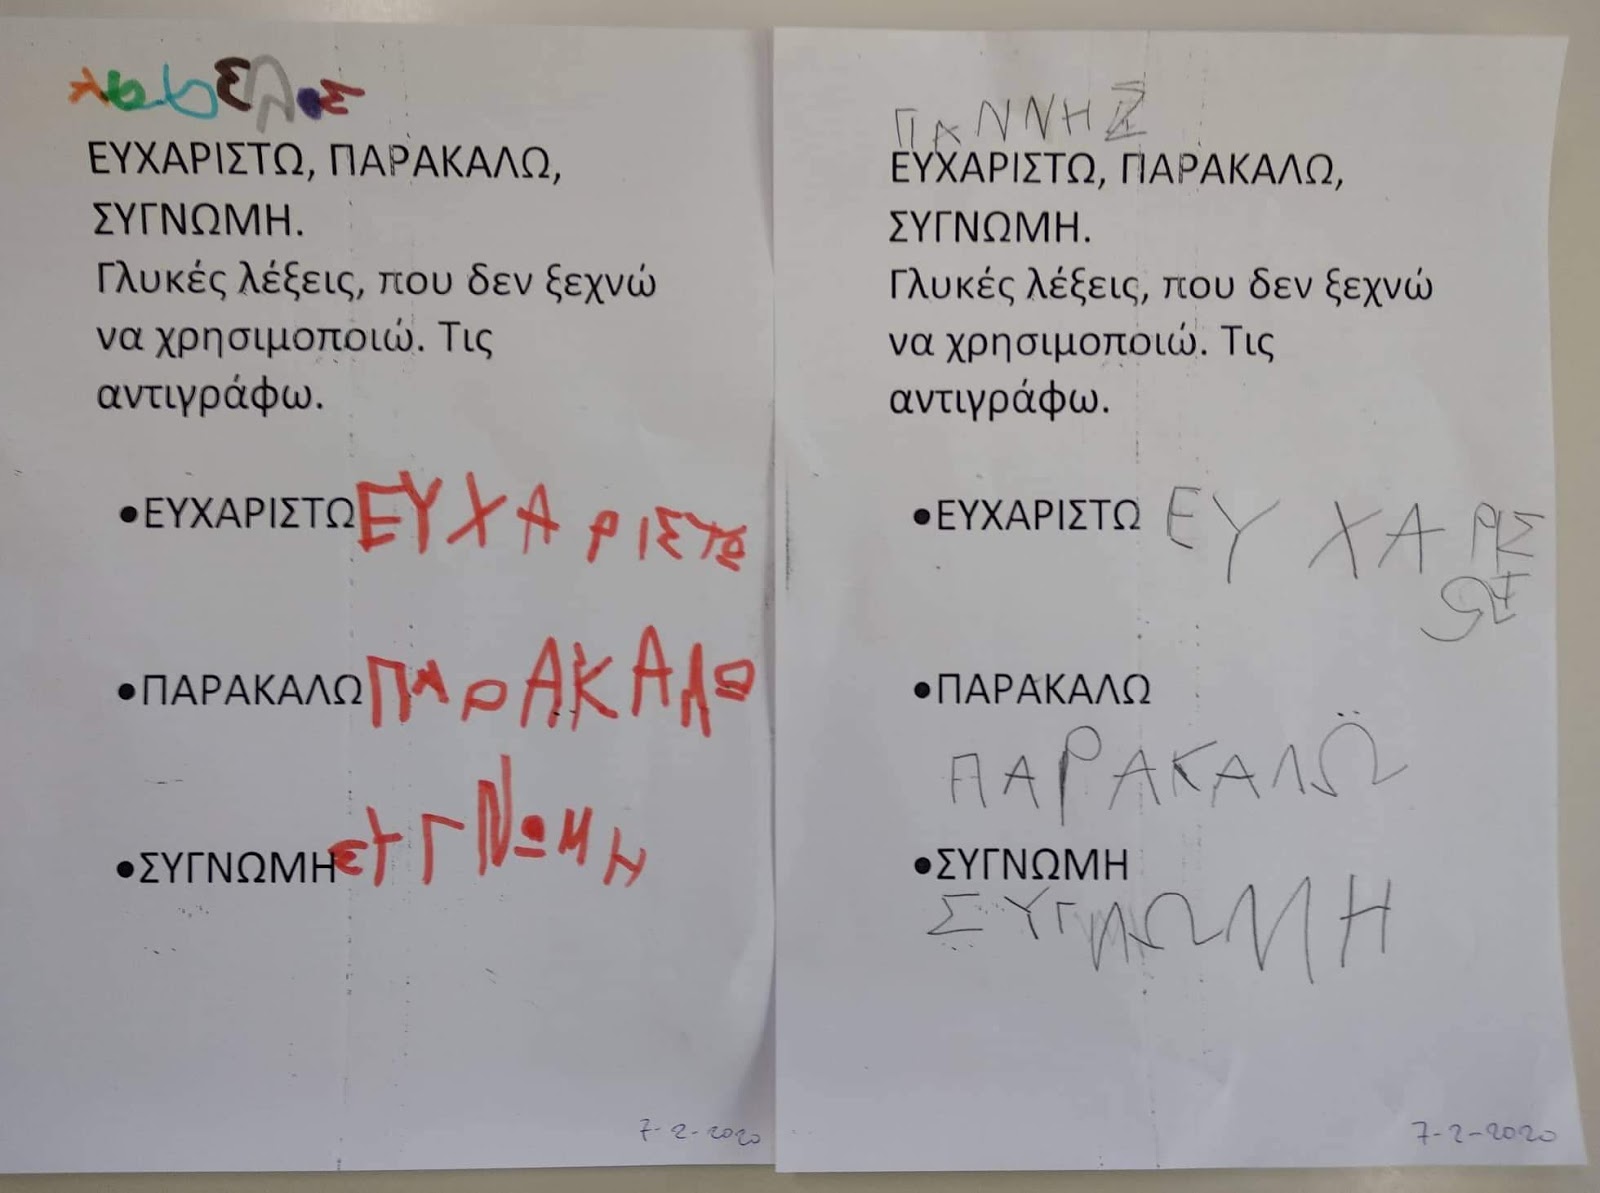 ΕΥΧΑΡΙΣΤΩ, ΠΑΡΑΚΑΛΩ,
ΣΥΓΝΩΜΗ.
Γλυκές λέξεις, που δεν ξεχνώ
να χρησιμοποιώ. Τις
αντιγράφω.
•ΕΥΧΑΡΙΣΤΩ ΕΥΧΑΡΙΣΤΩ
•ΠΑΡΑΚΑΛΩ ΠΑΡΑΚΑΛΩ
•ΣΥΓΝΩΜΗ ΣΥΓΝΩΜΗ
7-2-2020
ΓΙΑΝΝΗΣ
ΕΥΧΑΡΙΣΤΩ, ΠΑΡΑΚΑΛΩ,
ΣΥΓΝΩΜΗ.
Γλυκές λέξεις, που δεν ξεχνώ
να χρησιμοποιώ. Τις
αντιγράφω.
•ΕΥΧΑΡΙΣΤΩ ΕΥΧΑΡΙΣ
ΤΩ
•ΠΑΡΑΚΑΛΩ
ΠΑΡΑΚΑΛΩ
•ΣΥΓΝΩΜΗ
ΣΥΓΝΩΜΗ
7-2-2020